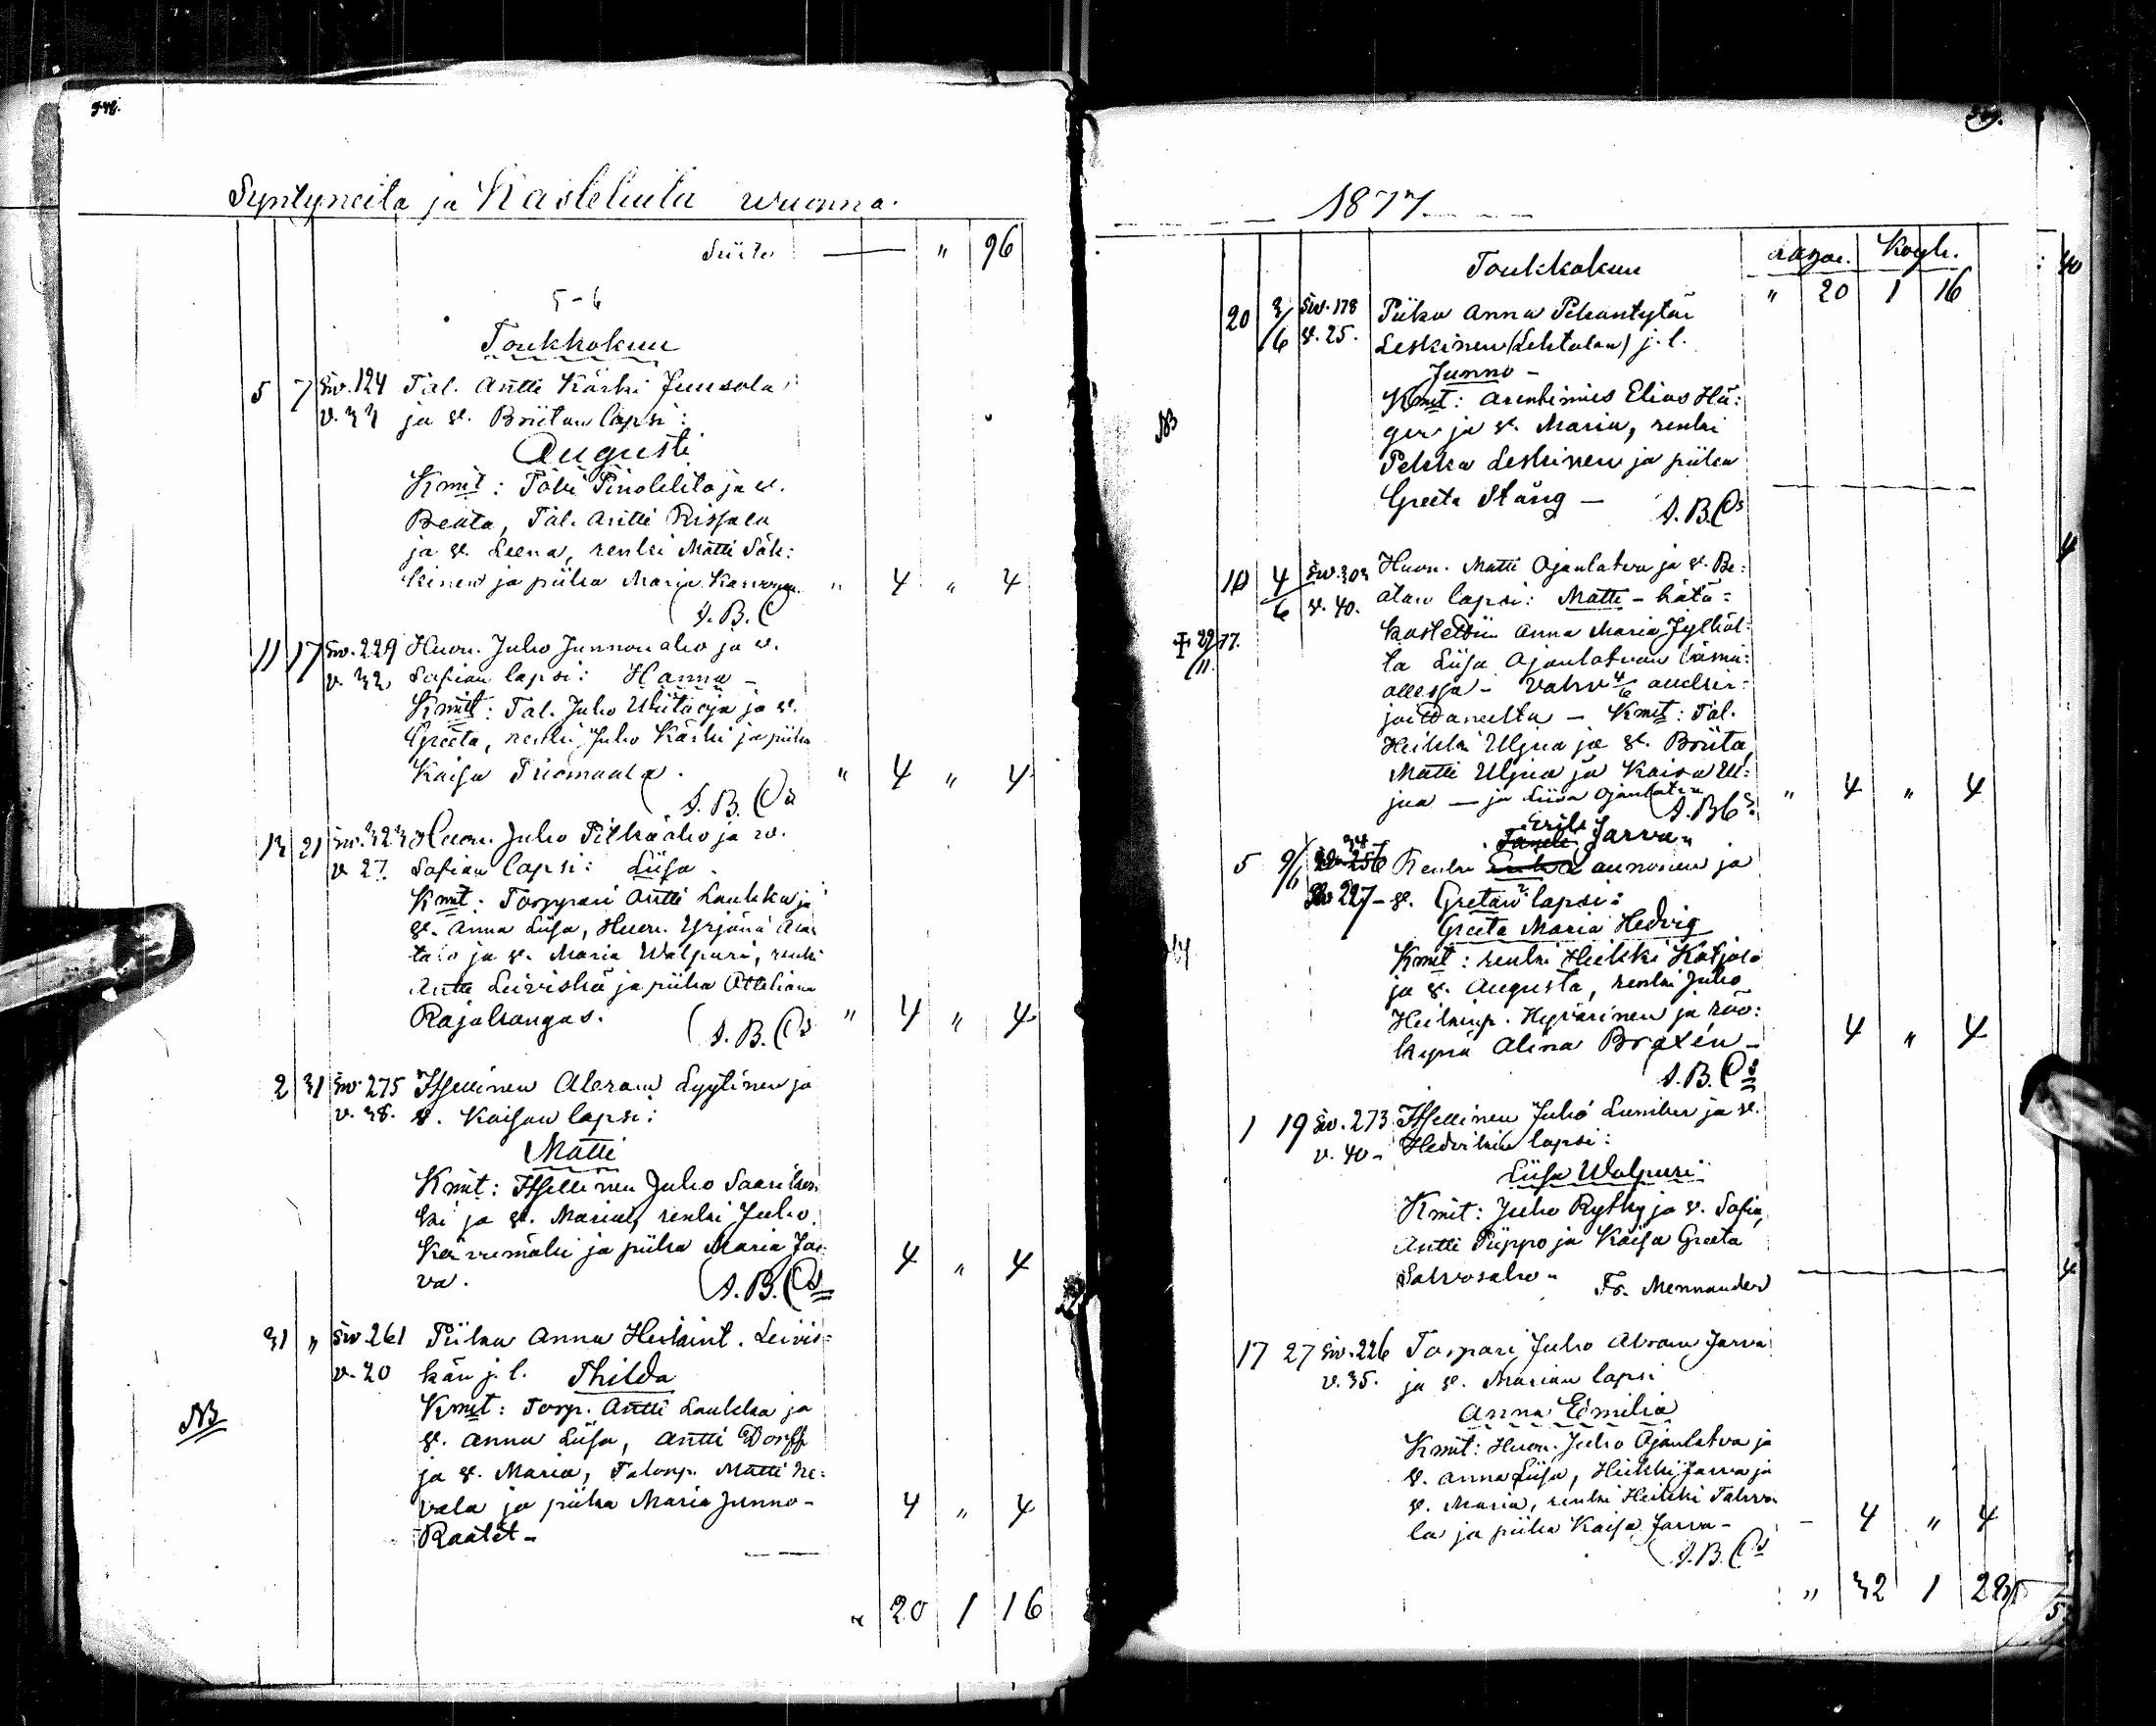 548.
Syntyneitä ja Kasteltuita wuonna.
Siirto — " 96
5-6
Toukkokuu
5 7 Siv. 124 Tal. Antti Kärki Juusola
v. 33 ja v. Briitan lapsi:
Augusti
Kmit: Talli Pinolehto ja v.
Beata, Tal. Antti Rissala
ja v. Leena, renki Matti Säk:
kinen ja piika Maria " 4 " 4
A.B.Cs
11 17 Siv. 229 Huon. Juho Junnonaho ja v.
v. 32 Sofian lapsi: Hanna -
Kmit: Tal. Juho ja v.
Greeta, renki Juho Kärki ja piika
Kaisa Triomaala. " 4 " 4
A.B.Cs
13 21 Siv. 323 Huon. Juho Pitkäaho ja w.
v 27. Sofian lapsi: Liisa
Kmit: Torppari Antti Laukka ja
v. Anna Liisa, Huon. Yrjänä Ala:
talo ja v. Maria Walpuri, renki
Antti Leiviskä ja piika Ottiliana
Rajakangas. " 4 " 4
A.B.Cs
2 31 Siv. 275 Itsellinen Abram Lyytinen ja
v. 38. v. Kaisan lapsi:
Matti
Kmit: Itsellinen Juho Saarikos:
ki ja v. Maria, renki Juho
Kärremäki ja piika Maria Jar:
va. 4 " 4
A.B.Cs
31 " Siv. 261 Piika Anna Heikint. Leivis:
v. 20 kän j. l. Thilda
NB
Kmit: Torp. Antti Laukka ja
v. Anna Liisa, Antti Dorff
ja v. Maria, Talonp. Matti Ne:
vala ja piika Maria Junno- 4 " 4
Raatet -
" 20 1 16
549.
1877
Toukkokuu Köyh.
" 20 1 16
20 3/6 Siv. 178 Piika Anna Pekantytär
v. 25. Leskinen (Lehtolan) j. l.
Junno -
NB
Kmit: Arentimies Elias Hä:
ger ja v. Maria, renki
Pekka Leskinen ja piika
Greeta Stång -
A.B.Cs
10 4/6 Siv. 303 Huon. Matti Ojanlatva ja v. Be:
v. 40. atan lapsi: Matti - hätä:
kastettiin Anna Maria Jylhäl:
† 29/11 77.
tä Liisa Ojanlatvan läsnä:
ollessa - Vahv. 4/6 audkir:
joittaneelta - Kmit: Tal.
Heikki Uljua ja v. Briita,
Matti Uljua ja Kaisa Ul:
jua - ja Liisa Ojanlatva " 4 " 4
A.B.Cs
Erik Jarva
5 9/6 256 Renki aunonen ja
227 - v. Gretan lapsi:
Greta Maria Hedvig
Kmit: renki Heikki Katjala
ja v. Augusta, renki Juho
Heikinp. Hyvärinen ja röö:
kynä Alina Braxén - 4 " 4
A.B.Cs
1 19 Siv. 273 Itsellinen Juho Lumiber ja v.
v. 40 - Hedvikin lapsi:
Liisa Walpuri
Kmit: Juho Rytky ja v. Sofia,
Antti Piippo ja Kaisa Greeta
Salvosaho - Fr. Mennander
17 27 Siv. 226 Torpari Juho Abram Jarva
v. 35. ja v. Marian lapsi
Anna Emilia
Kmit: Huon. Juho Ojanlatva ja
v. Anna Liisa, Heikki Jarva ja
v. Maria, renki Heikki Tahva:
la ja piika Kaisa Jarva - 4 " 4
A.B.Cs
" 32 1 28